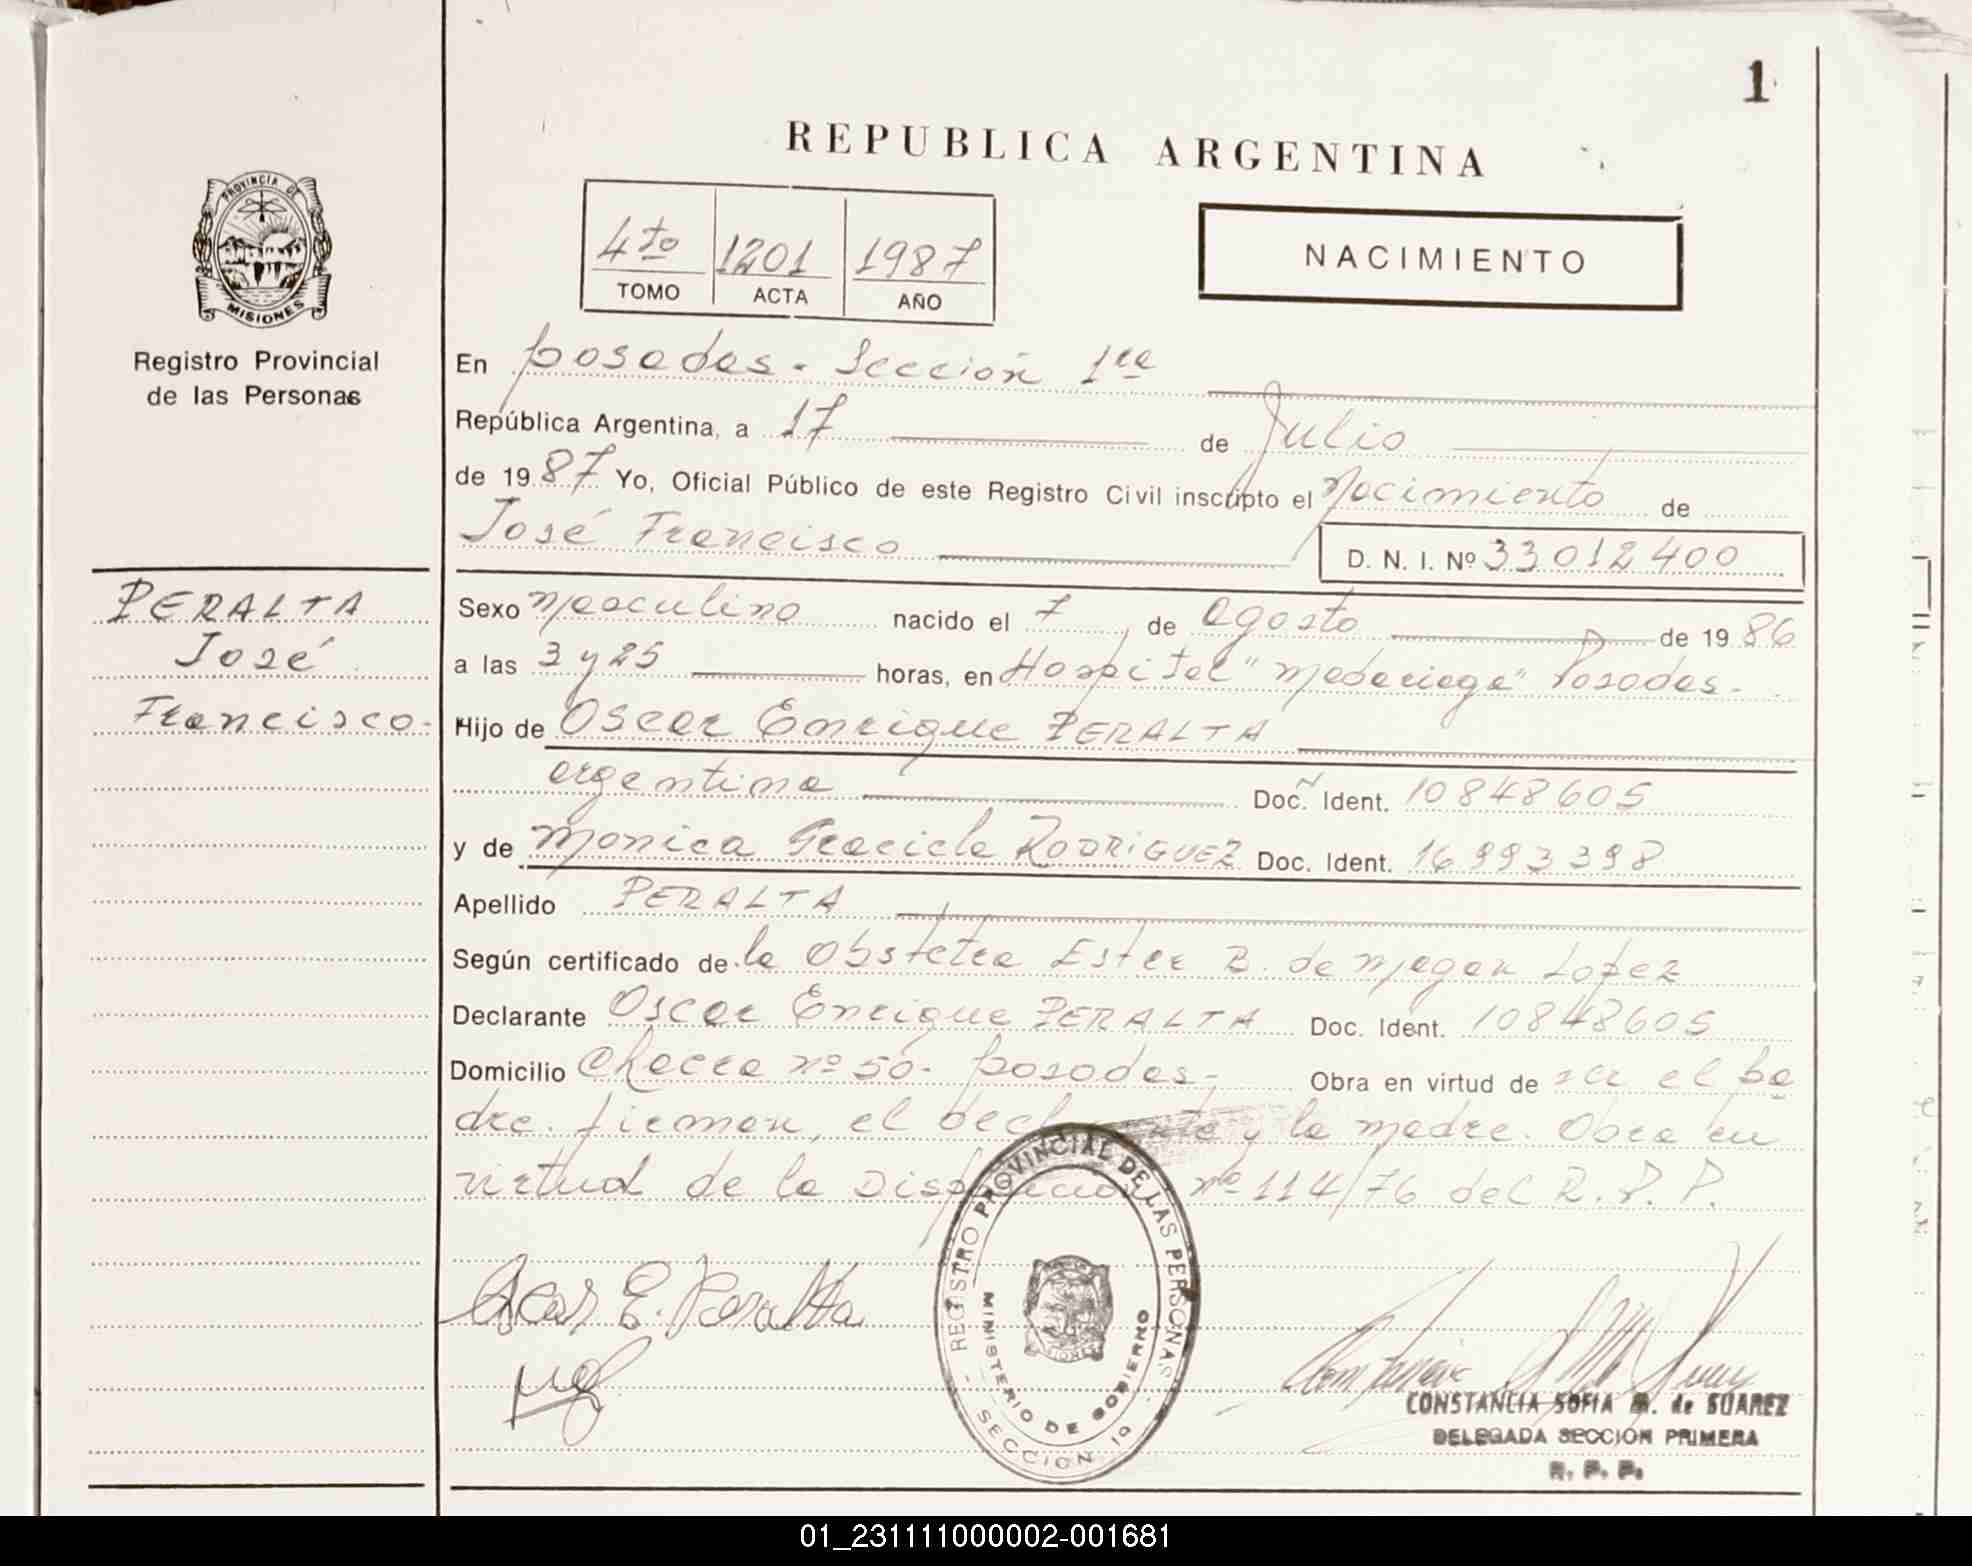 1
REPUBLICA ARGENTINA
PROVINCIA DE MISIONES
Registro Provincial
de las Personas
4to 1201 1987
TOMO ACTA AÑO
NACIMIENTO
En posadas - Sección 1ra
República Argentina, a 17 de Julio
de 1987 Yo, Oficial Público de este Registro Civil inscripto el Nacimiento de
José Francisco D. N. I. Nº 33012400
PERALTA
José
Francisco.-
Sexo masculino nacido el 7 de agosto de 1986
a las 3 y 25 horas, en Hospital "Madariaga" Posadas-
Hijo de Oscar Enrique PERALTA
argentino Doc. Ident. 10848605
y de Monica Graciela RODRIGUEZ Doc. Ident. 16993398
Apellido PERALTA
Según certificado de la Obstetra Ester B. de Lopez
Declarante Oscar Enrique PERALTA Doc. Ident. 10848605
Domicilio Chacra nº 50- posadas- Obra en virtud de ser el pa
dre. firman, el declarante y la madre. Obra en
virtud de la Disposición nº 114/76 del R. P. P.
Oscar E. Peralta
REGISTRO PROVINCIAL DE LAS PERSONAS
MINISTERIO DE GOBIERNO
SECCION 1º
CONSTANCIA SOFIA M. de SUAREZ
DELEGADA SECCION PRIMERA
R. P. P.
01_231111000002-001681